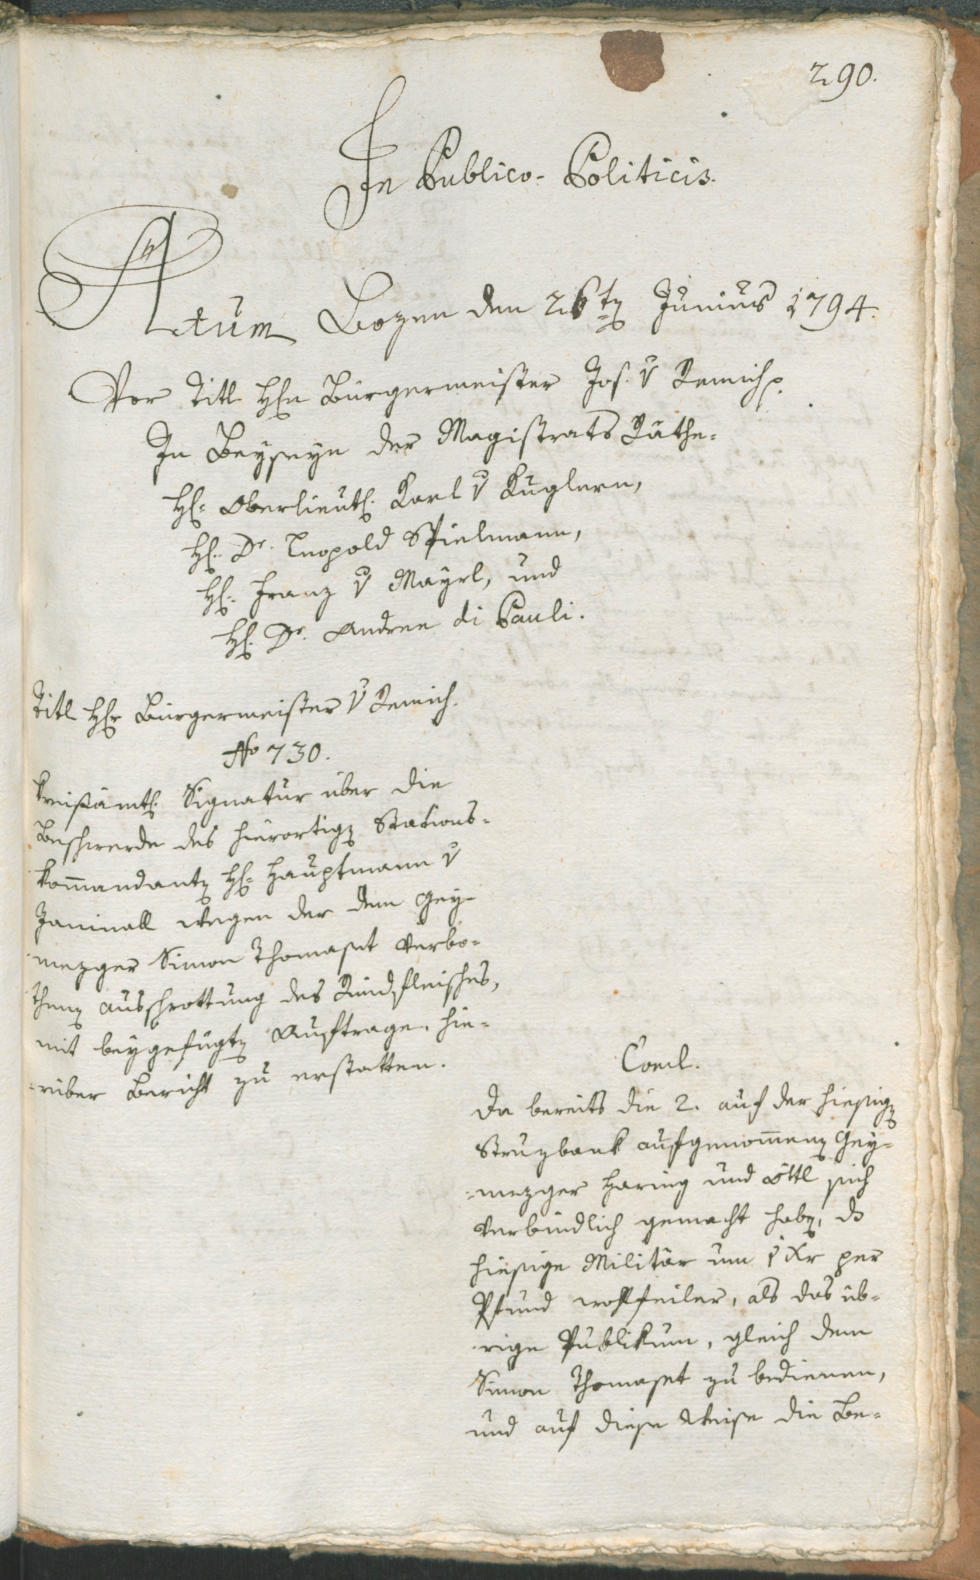 290.
In Publico-Politicis.
Actum Bozen den 26t Junius 1794.
Vor Titl H. Bürgermeister Jos. v Remich p.
In Beyseyn der Magistrats Räthe.
H. Oberlieut. Karl v Kuglern,
H. Dr. Leopold Spielmann,
H. Franz v Mayrl, und
H. Dr. Andree di Pauli.
Titl H. Bürgermeister v Remich.
No 730.
Kreisämtl. Signatur über die
Beschwerde des hierortign Stations-
kommandantn H. Hauptmann v
wegen der dem Gey-
mezger Simon Thomaset verbo-
thenn Ausschrottung des Rindfleisches,
mit beygefügtn Auftrage hie-
rüber Bericht zu erstatten.
Concl.
Da bereits die 2. auf der hiesign
Struzbank aufgenommenn Gey-
mezger Haring und Öttl sich
verbindlich gemacht habn, ds
hiesige Militär um 1 Xr per
Pfund wohlfeiler, als das üb-
rige Publikum, gleich dem
Simon Thomaset zu bedienen,
und auf diese Weise die Be-